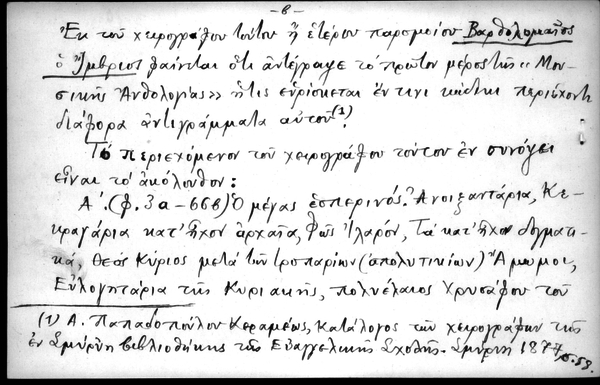 -6-
Ἐκ τοῦ χειρογράφου τούτου ἢ ἑτέρου παρομοίου Βαρθολομαῖος
ὁ Ἴμβριος φαίνεται ὅτι ἀντέγραψε τὸ πρῶτον μέρος τῆς «Μου-
σικῆς Ἀνθολογίας» ἥτις εὑρίσκεται ἔν τινι περιέχοντι
διάφορα ἀντιγράμματα αὐτοῦ (1).
Τὸ περιεχόμενον τοῦ χειρογράφου τούτου ἐν συνόψει
εἶναι τὸ ἀκόλουθον:
Α΄. (φ. 3α-66β) Ὁ μέγας ἑσπερινός. Ἀνοιξαντάρια, Κε-
κραγάρια κατ' ἦχον ἀρχαῖα, Φῶς Ἱλαρόν, Τὰ κατ' ἦχον δογματι-
κά, Θεὸς Κύριος μετὰ τῶν τροπαρίων (ἀπολυτικίων) Ἄμωμοι,
Εὐλογητάρια τῆς Κυριακῆς, πολυέλαιος Χρυσάφου τοῦ
(1) Α. Παπαδοπούλου Κεραμέως, Κατάλογος τῶν χειρογράφων τῆς
ἐν Σμύρνῃ βιβλιοθήκης τῆς Εὐαγγελικῆς Σχολῆς. Σμύρνη 1877, σ. 59.